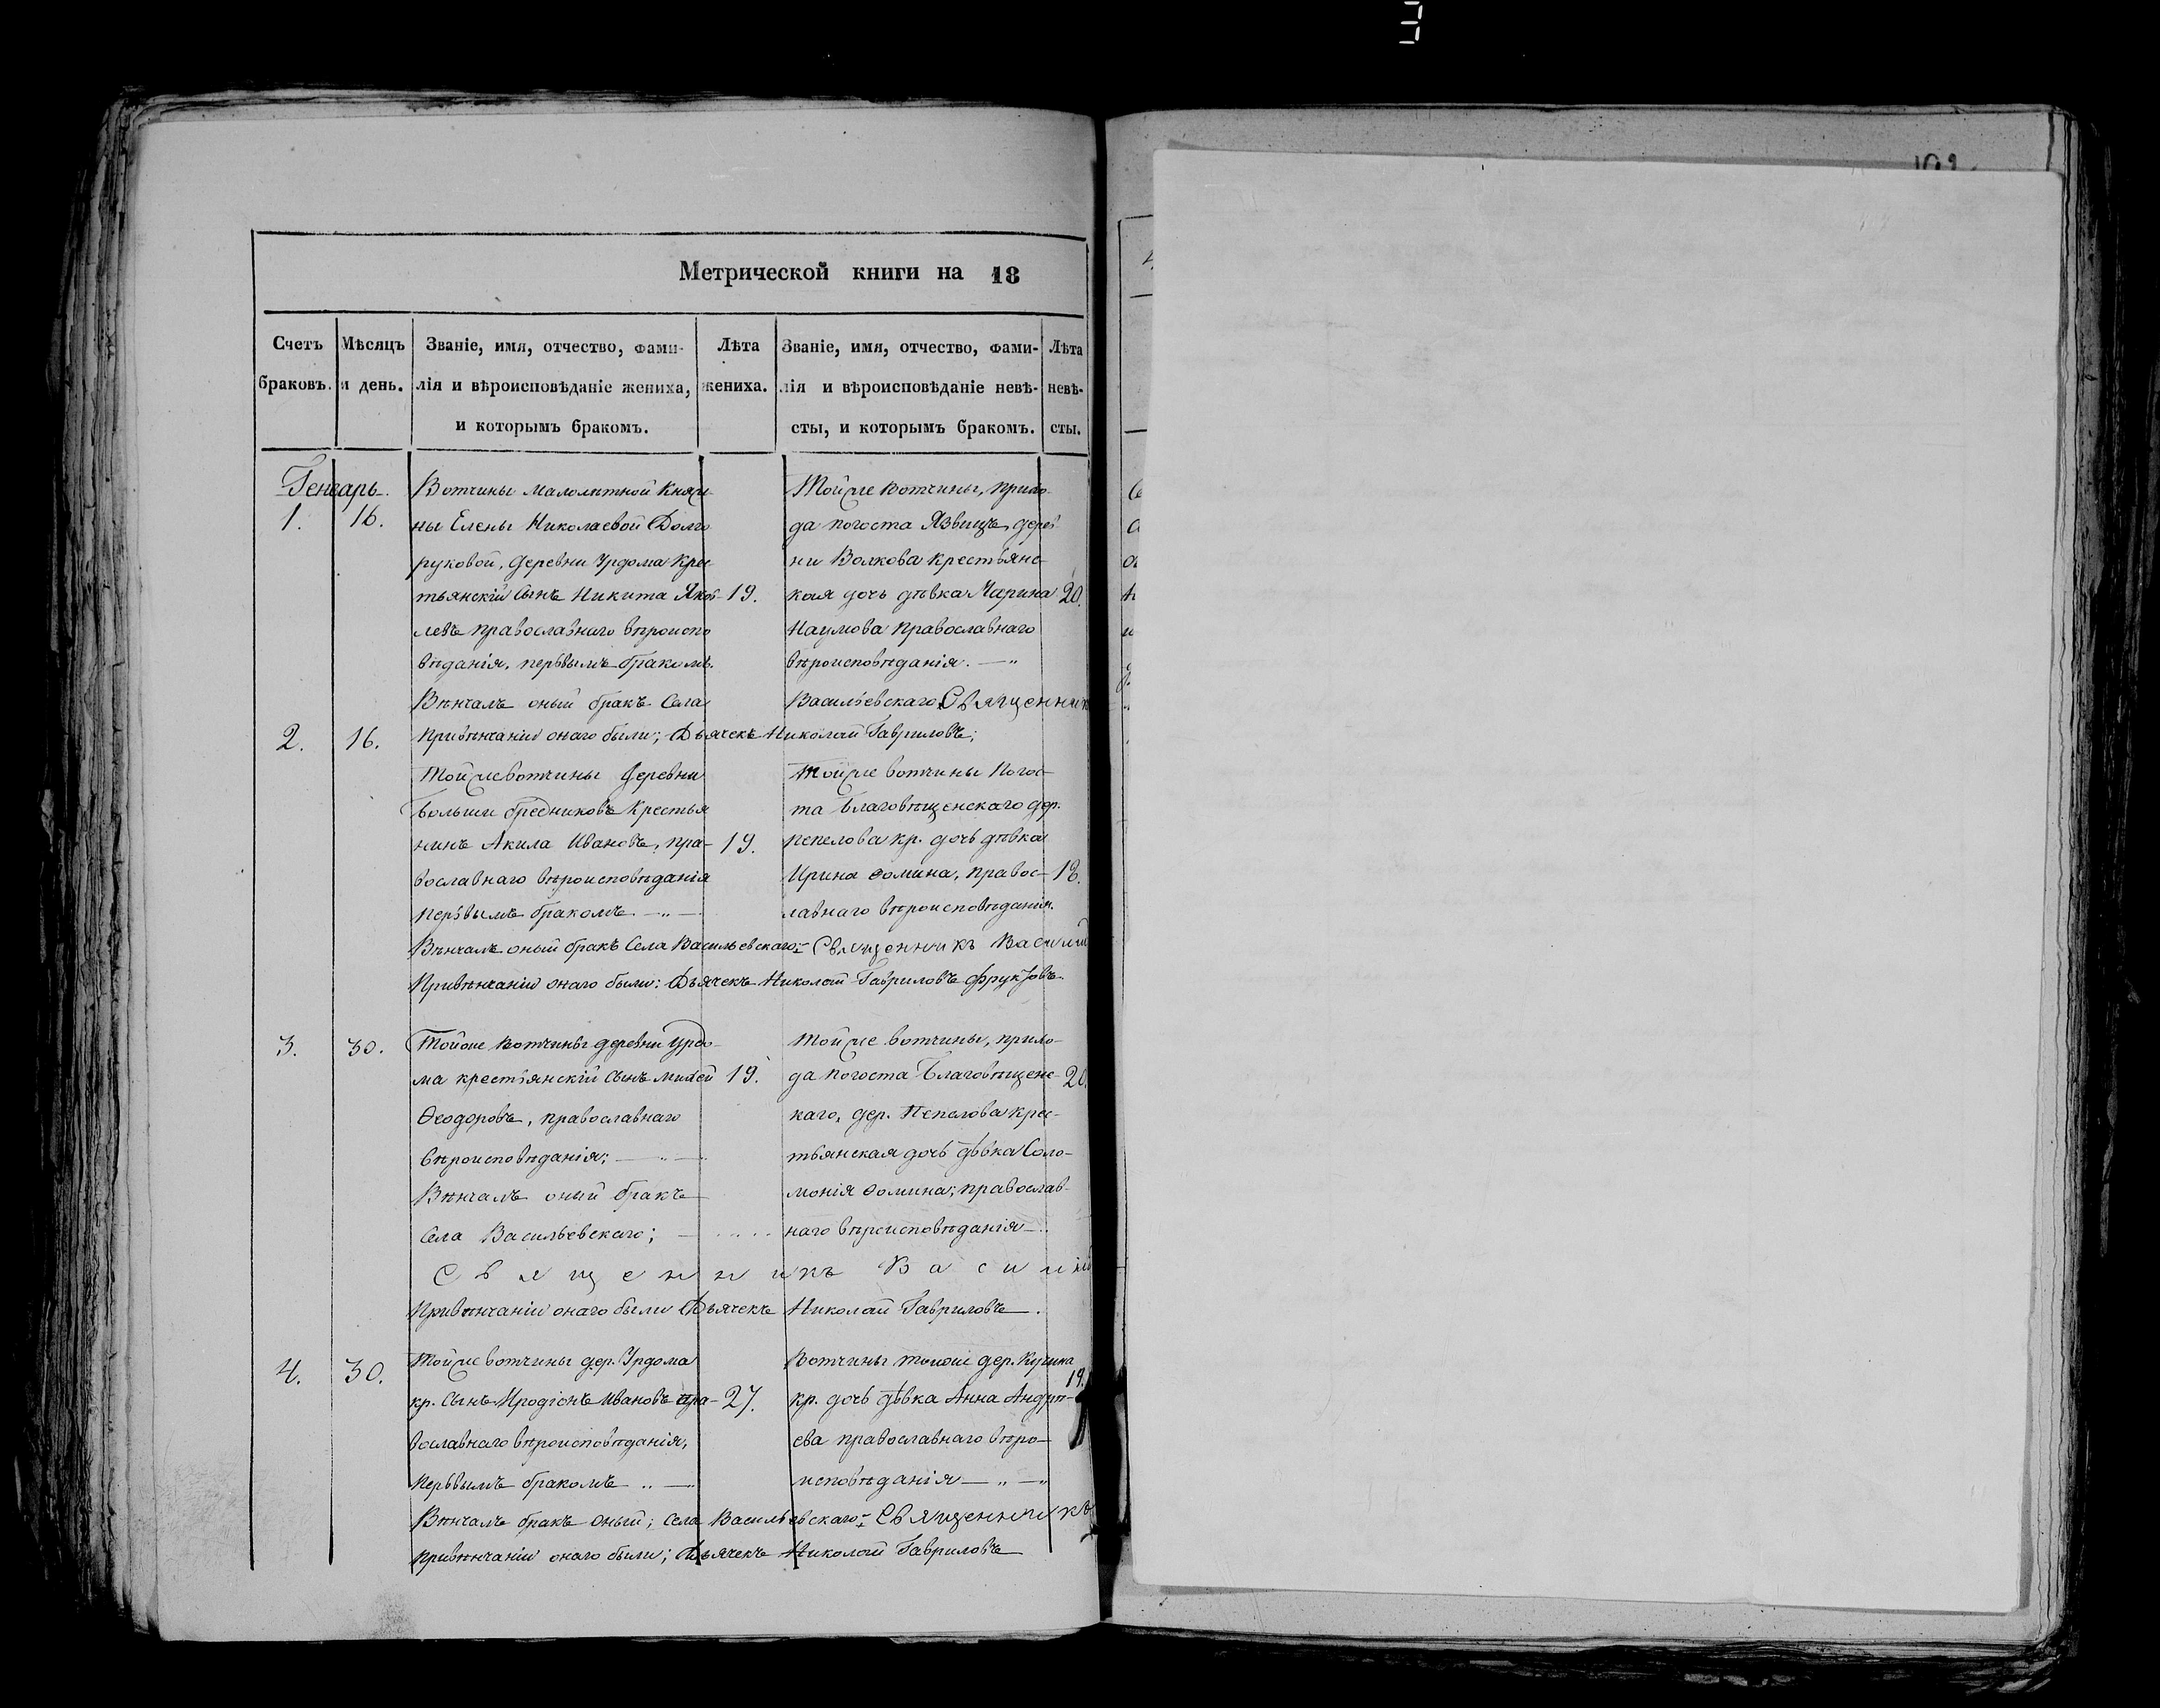 Метрической книги на 18
Счетъ браковъ.
Мѣсяцъ и день.
Званіе, имя, отчество, фами-
лія и вѣроисповѣданіе жениха,
и которымъ бракомъ.
Лѣта жениха.
Званіе, имя, отчество, фами-
лія и вѣроисповѣданіе невѣ-
сты, и которымъ бракомъ.
Лѣта невѣ-
сты.
Генварь.
1. 16.
Вотчины малолѣтной Княж
ны Елены Николаевой Долго
руковой, деревни Урдома Крес
тьянскій Сынъ Никита Яков- 19.
левъ православнаго вѣроиспо
вѣданія, первымъ бракомъ.
Тойже вотчины, прихо-
да погоста Язвищъ, дерев
ни Волкова Крестьянс-
кая дочь дѣвка Марина 20.
Наумова православнаго
вѣроисповѣданія. — „
Вѣнчалъ оный бракъ Села Васильевскаго Священник
Привѣнчаніи онаго были; Дьячекъ Николай Гавриловъ;
2. 16.
Тойже вотчины Деревни
Больши бредниковъ Крестья
нинъ Акила Ивановъ, пра- 19.
вославнаго вѣроисповѣданія
первымъ бракомъ — „ —
Тойже вотчины Погос-
та Благовѣщенскаго дер.
пепелова кр. дочь дѣвка
Ирина Ѳомина, правос- 18.
лавнаго вѣроисповѣданія.
Вѣнчалъ оный бракъ Села Васильевскаго; Священникъ Василій
Привѣнчаніи онаго были: Дьячекъ Николай Гавриловъ Фруктовъ.
3. 30.
Тойже Вотчины деревни Урдо-
ма крестьянскій Сынъ Михей 19.
Ѳеодоровъ, православнаго
вѣроисповѣданія; — „ —
Вѣнчалъ оный бракъ
Села Васильевскаго; —
Тойже вотчины, прихо-
да погоста Благовѣщенс- 20.
каго, дер. Пепелова крес-
тьянская дочь дѣвка Соло-
монія Ѳомина; православ-
наго вѣроисповѣданія —
Священникъ Василій
Привѣнчаніи онаго были Дьячекъ Николай Гавриловъ.
4. 30.
Тойже вотчины дер. Урдома
кр. Сынъ Иродіонъ Ивановъ пра- 27.
вославнаго вѣроисповѣданія,
первымъ бракомъ „ —
Вотчины тойже дер.
19.
кр. дочь дѣвка Анна Андрѣ-
ева православнаго вѣро-
исповѣданія — „ — „
Вѣнчалъ бракъ оный; Села Васильевскаго; Священникъ
Привѣнчаніи онаго были; Дьячекъ Николай Гавриловъ